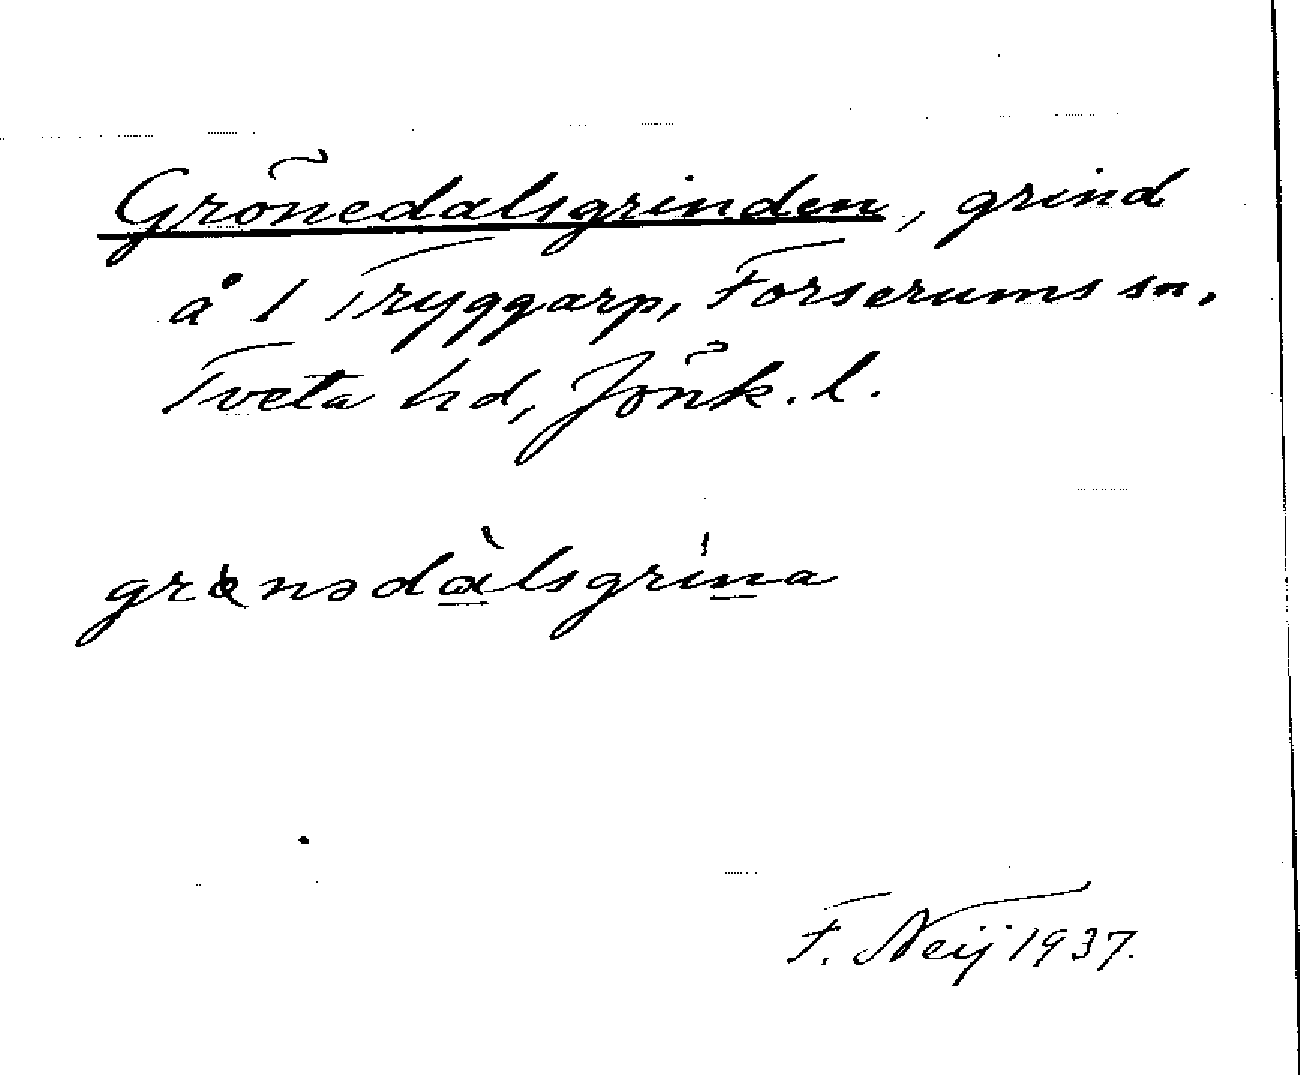 Grönedalsgrinden, grind
å 1 Tryggarp, Forserums sn,
Tveta hd, Jönk. l.
grɵnədàlsgrína
F. Neij 1937.